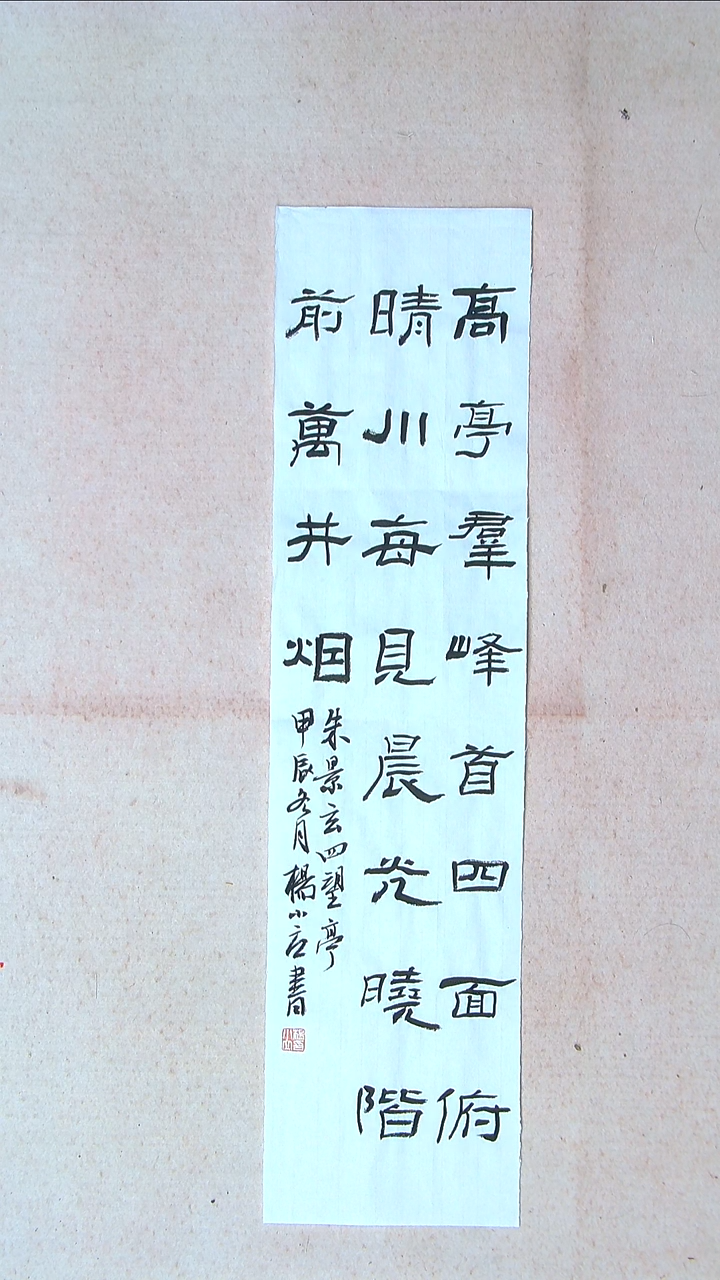 高亭羣峰首四面俯
晴川每見晨光曉階
前萬井烟
朱景玄四望亭
甲辰冬月楊小立書